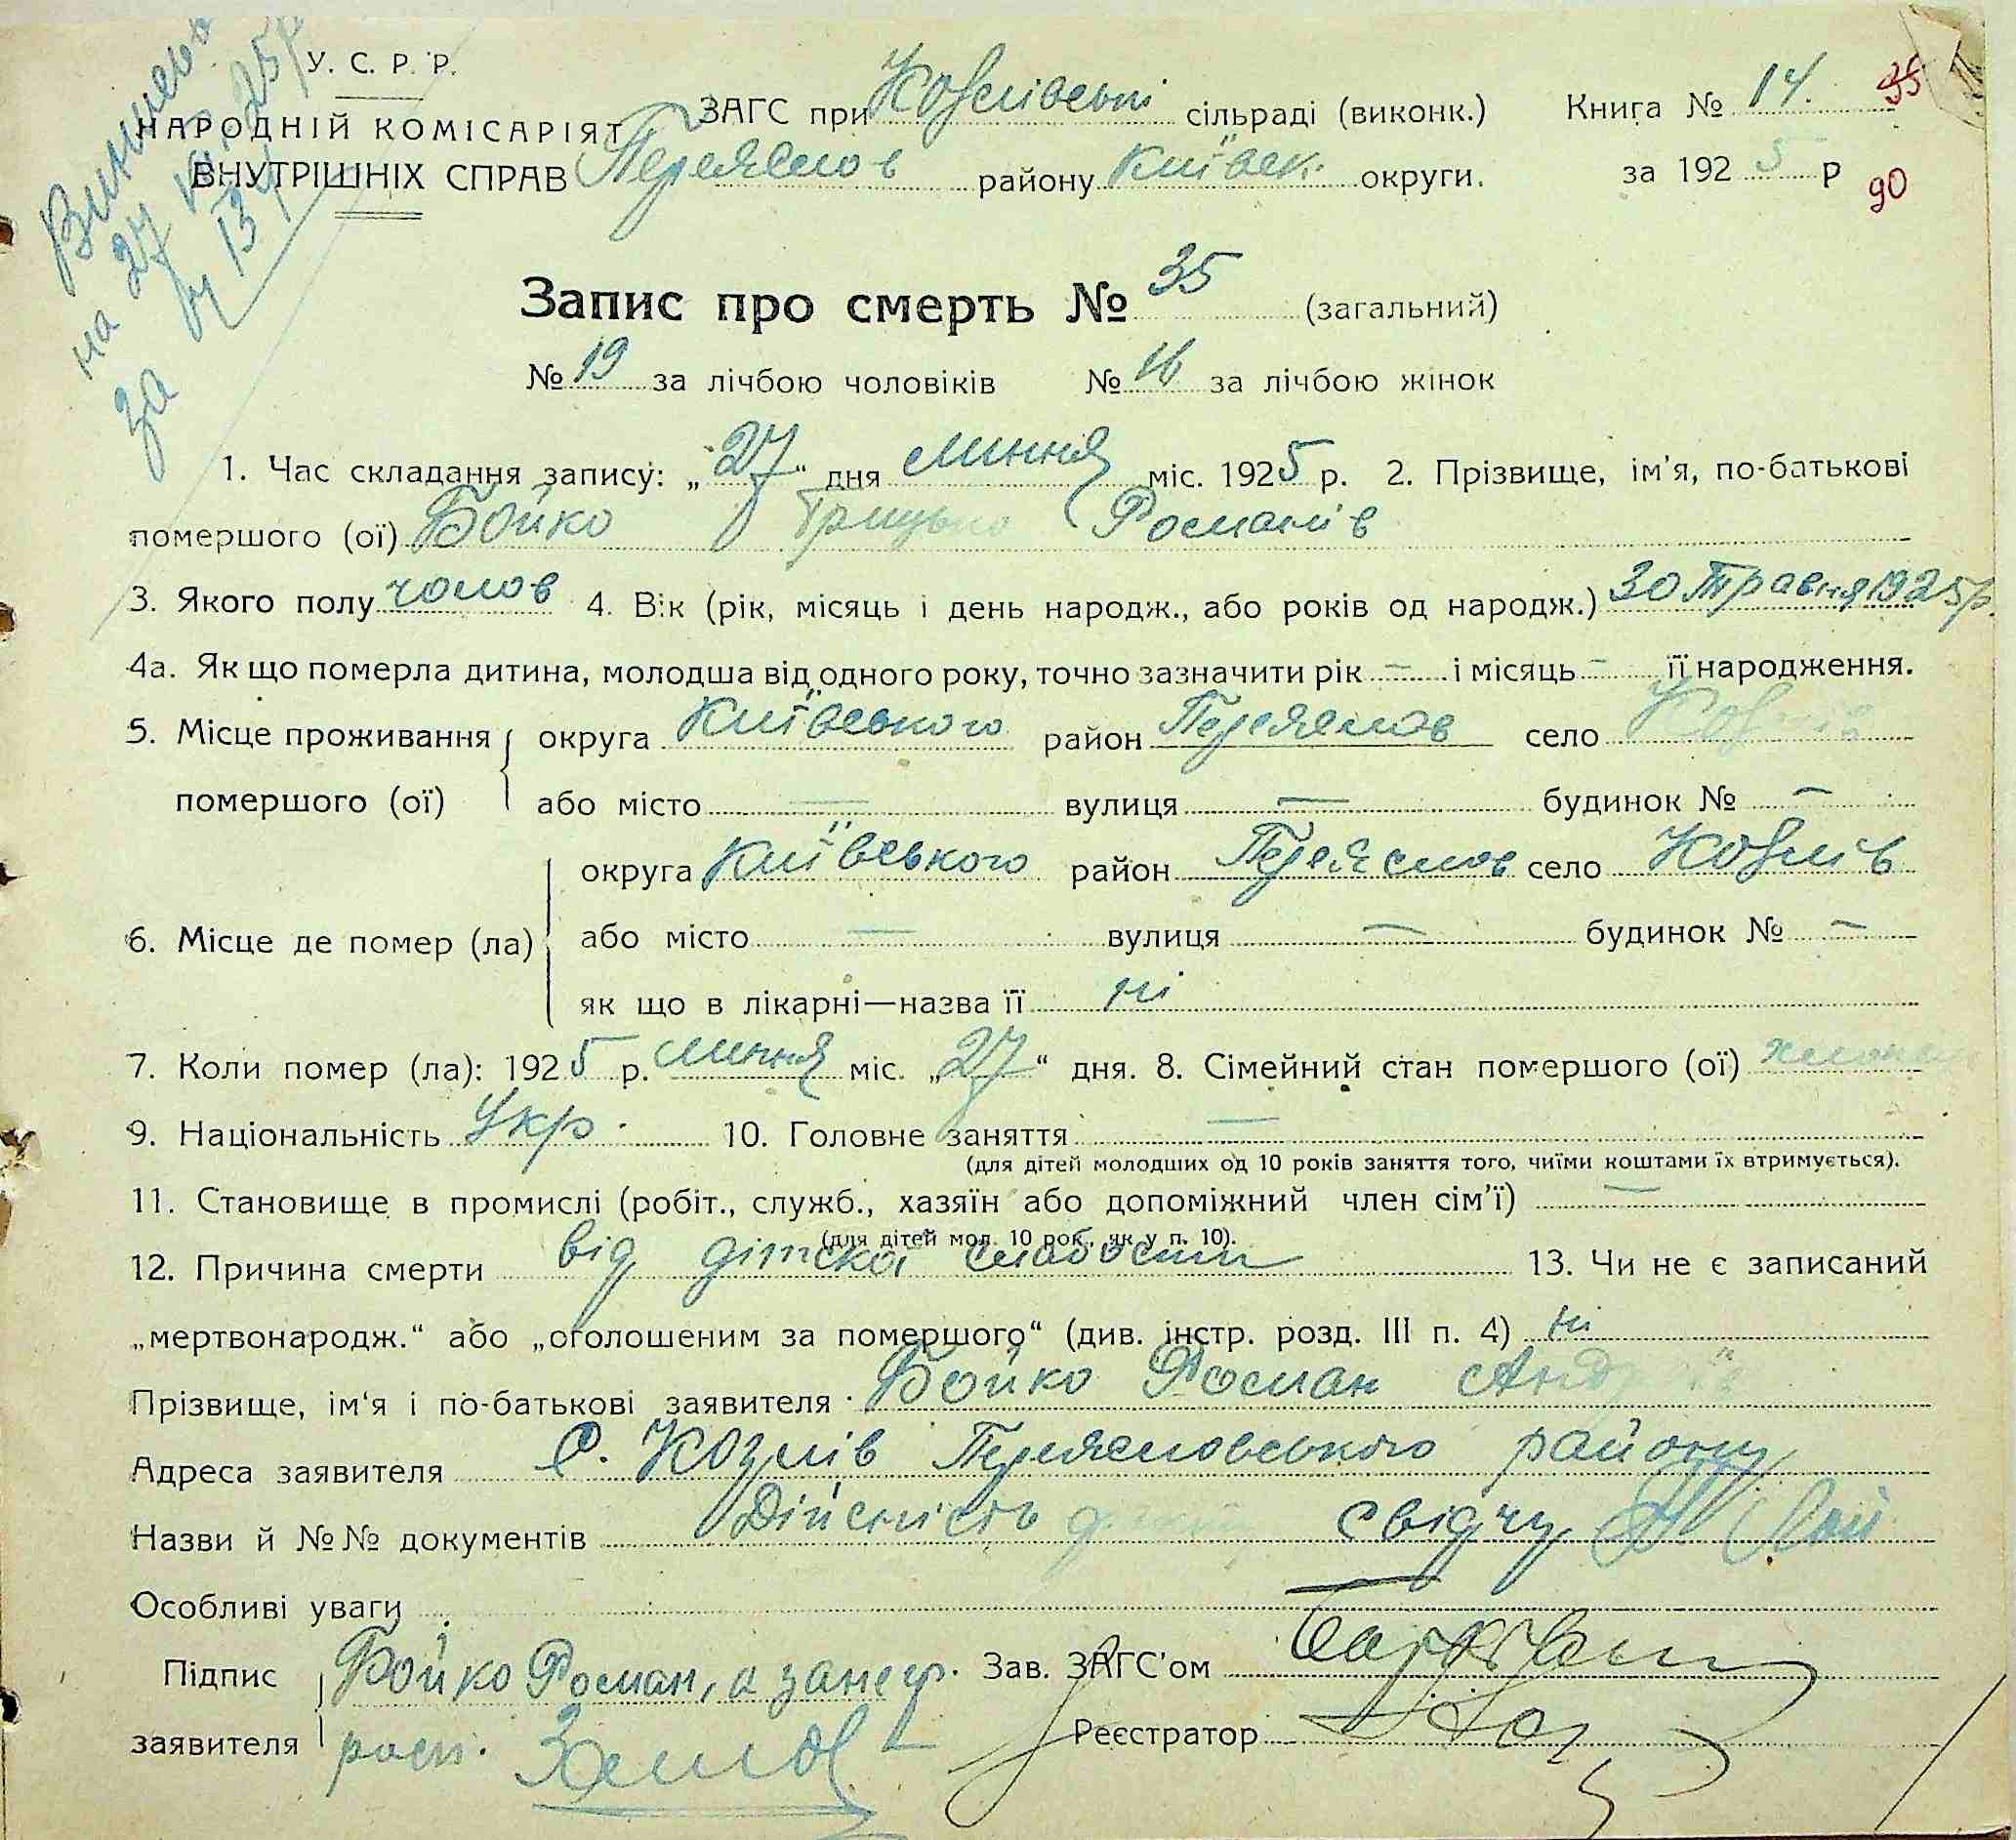 У. С. Р. Р.
НАРОДНІЙ КОМІСАРІЯТ
ВНУТРІШНІХ СПРАВ
на 27
за
ЗАГС при Козлівській сільраді (виконк.)
Переяслов району Київськ. округи.
Книга № 14. 35
за 1925 р 90
Запис про смерть № 35 (загальний)
№ 19 за лічбою чоловіків № 16 за лічбою жінок
1. Час складання запису: „27“ дня липня міс. 1925 р. 2. Прізвище, ім'я, по-батькові
помершого (ої) Бойко Грицько Романів
3. Якого полу чолов 4. Вік (рік, місяць і день народж., або років од народж.) 30 Травня 1925 р.
4а. Як що померла дитина, молодша від одного року, точно зазначити рік — і місяць — її народження.
5. Місце проживання помершого (ої) округа Київського район Переяслов село Козлів
або місто — вулиця — будинок № —
6. Місце де помер (ла) округа Київського район Переяслов село Козлів
або місто — вулиця — будинок № —
як що в лікарні—назва її ні
7. Коли помер (ла): 1925 р. липня міс. „27“ дня. 8. Сімейний стан помершого (ої)
9. Національність Укр. 10. Головне заняття —
(для дітей молодших од 10 років заняття того, чиїми коштами їх втримується).
11. Становище в промислі (робіт., служб., хазяїн або допоміжний член сім'ї) —
(для дітей мол. 10 рок., як у п. 10).
12. Причина смерти від дітской слабости 13. Чи не є записаний
„мертвонародж.“ або „оголошеним за помершого“ (див. інстр. розд. III п. 4) ні
Прізвище, ім'я і по-батькові заявителя Бойко Роман Андріїв
Адреса заявителя С. Козлів Переясловського району
Назви й №№ документів Дійсність свідчу
Особливі уваги
Підпис заявителя Бойко Роман, а за негр.
расп.
Зав. ЗАГС'ом
Реєстратор